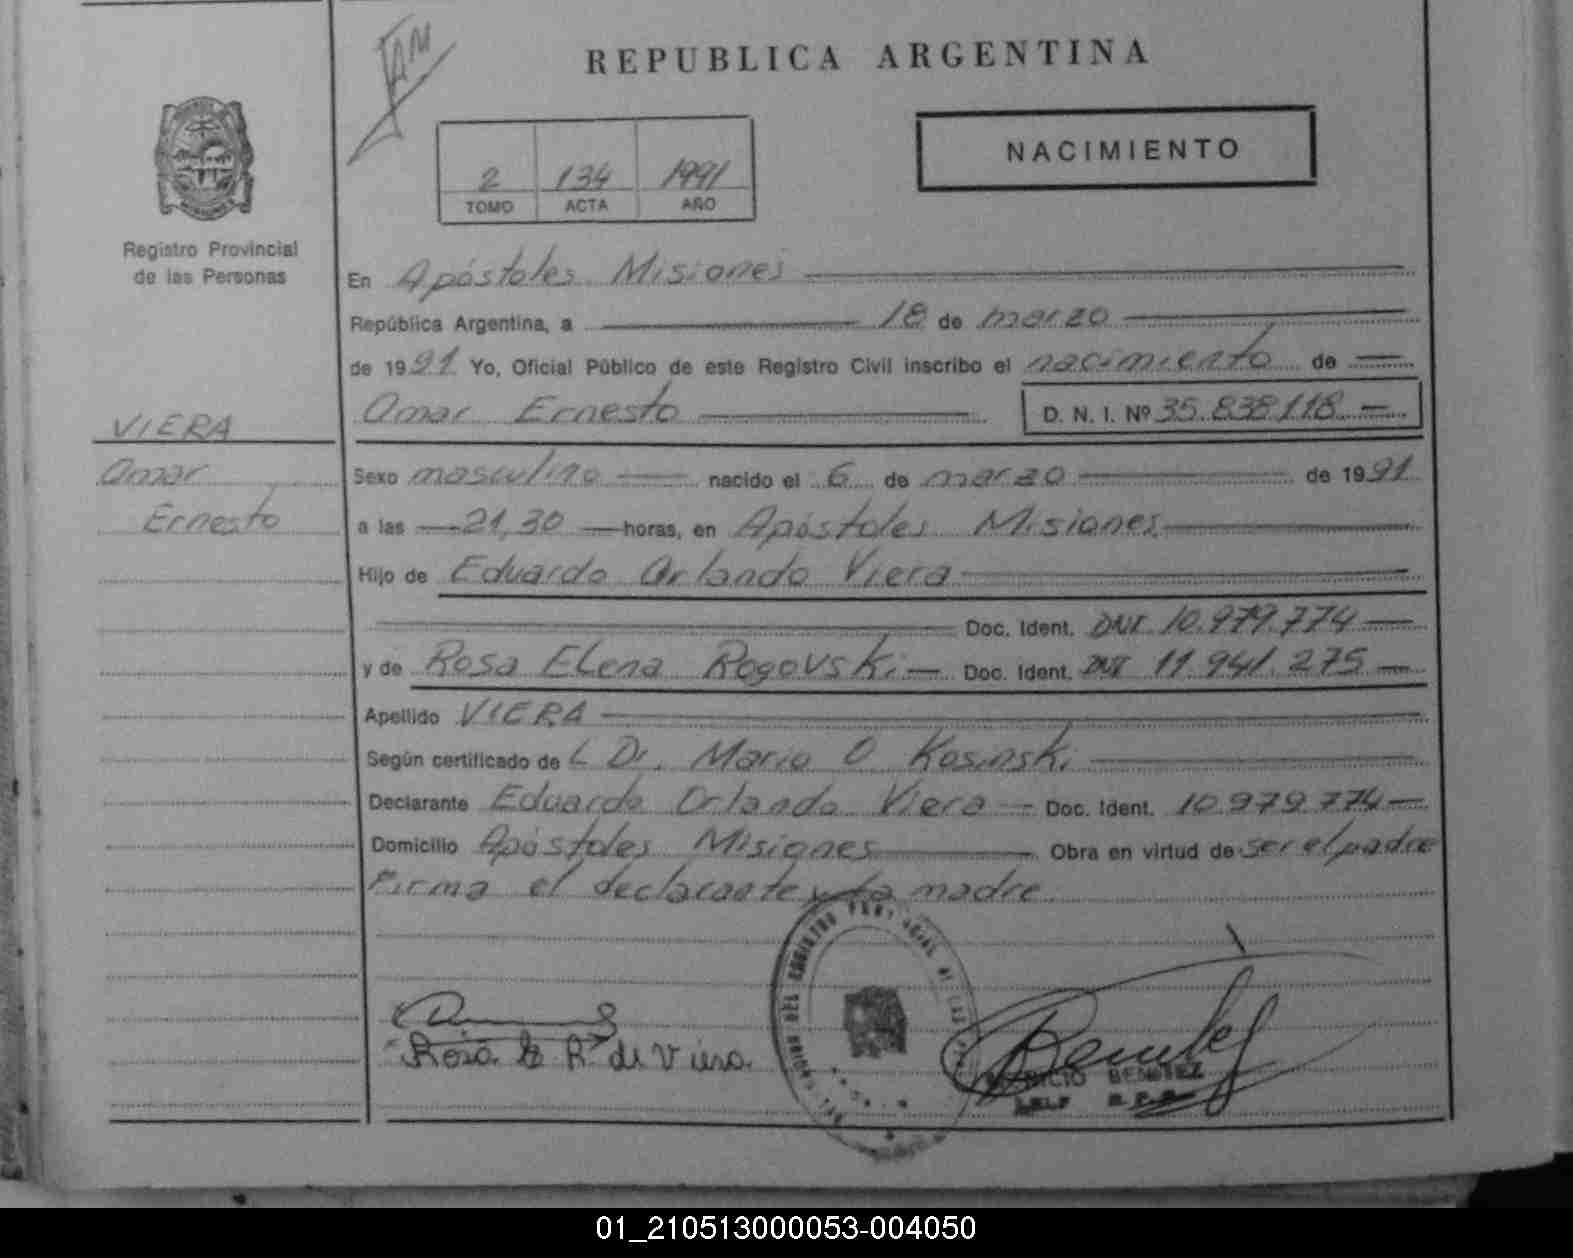 REPUBLICA ARGENTINA
NACIMIENTO
2 134 1991
TOMO ACTA AÑO
Registro Provincial
de las Personas
En Apóstoles Misiones
República Argentina, a 18 de marzo
de 1991 Yo, Oficial Público de este Registro Civil inscribo el nacimiento de
Omar Ernesto D. N. I. Nº 35.838.118
VIERA
Omar
Ernesto
Sexo masculino nacido el 6 de marzo de 1991
a las 21,30 horas, en Apóstoles Misiones
Hijo de Eduardo Orlando Viera
Doc. Ident. DNI 10.979.774
y de Rosa Elena Rogovski Doc. Ident. DNI 11.941.275
Apellido VIERA
Según certificado de L Dr. Mario O Kosinski
Declarante Eduardo Orlando Viera Doc. Ident. 10.979.774
Domicilio Apóstoles Misiones Obra en virtud de ser el padre
Firma el declarante y la madre.
Rosa E R. de Viera
BENITEZ
01_210513000053-004050